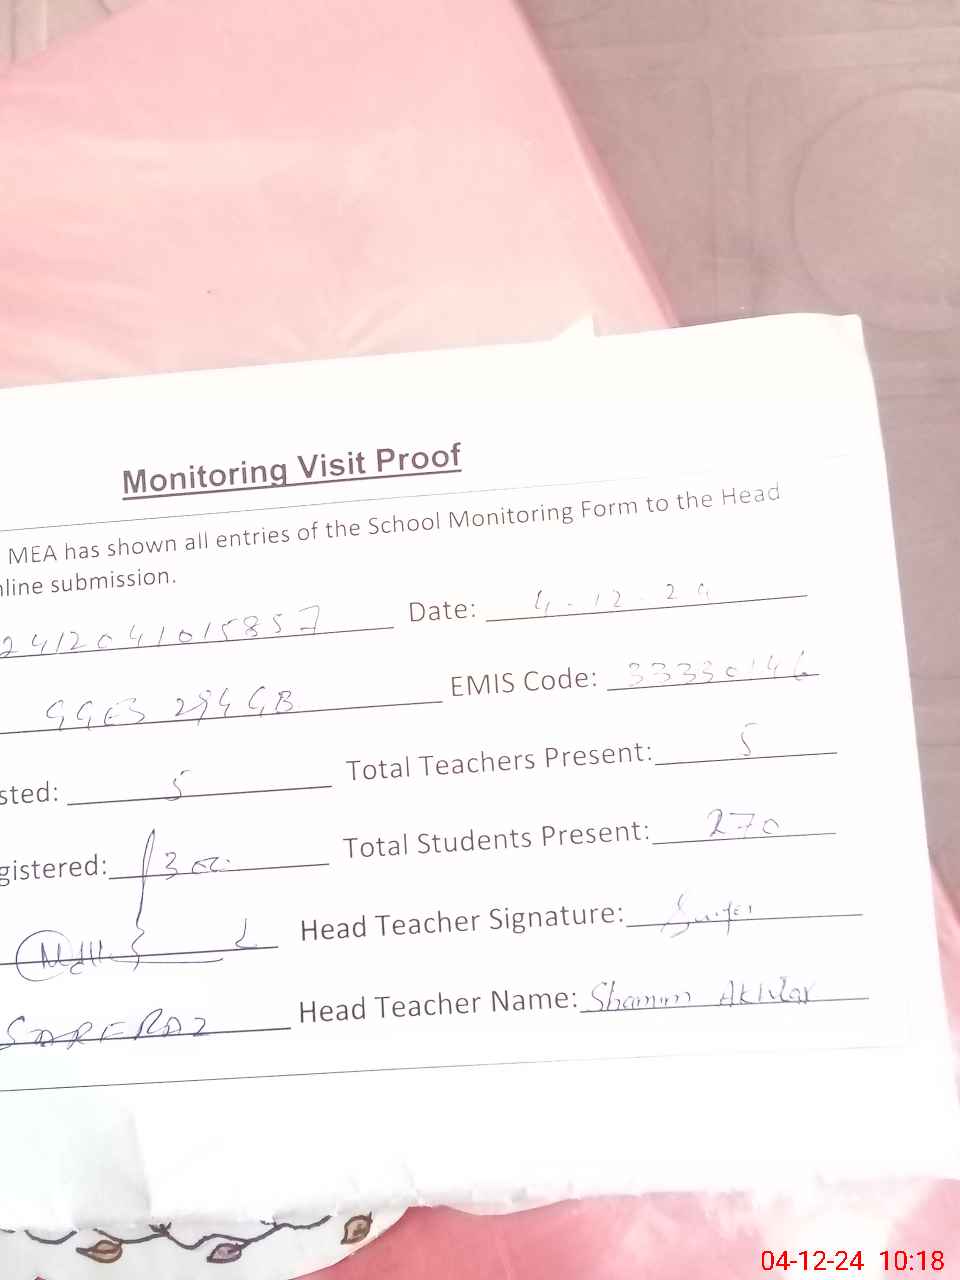 Monitoring Visit Proof
MEA has shown all entries of the School Monitoring Form to the Head
nline submission.
2412041015857 Date: 4-12-24
GGES 294 GB EMIS Code: 33330146
sted: 5 Total Teachers Present: 5
gistered: 300 Total Students Present: 270
Head Teacher Signature:
SARFRAZ Head Teacher Name: Shamim Akhtar
04-12-24 10:18